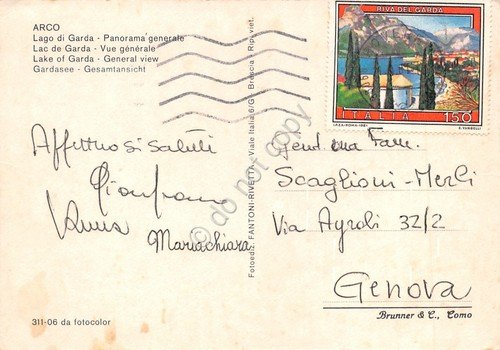 ARCO
Lago di Garda - Panorama generale
Lac de Garda - Vue générale
Lake of Garda - General view
Gardasee - Gesamtansicht
RIVA DEL GARDA
ITALIA 150
I.P.Z.S.-ROMA-1981
E. VANGELLI
Affettuosi saluti
Gianfranco
Mariachiara
Fotoediz. FANTONI-RIVETTI - Viale Italia 6/G - Brescia - Rip. viet.
© do not copy
Gent.ma Fam.
Scaglioni-Merli
Via Ayroli 32/2
Genova
311-06 da fotocolor
Brunner & C., Como